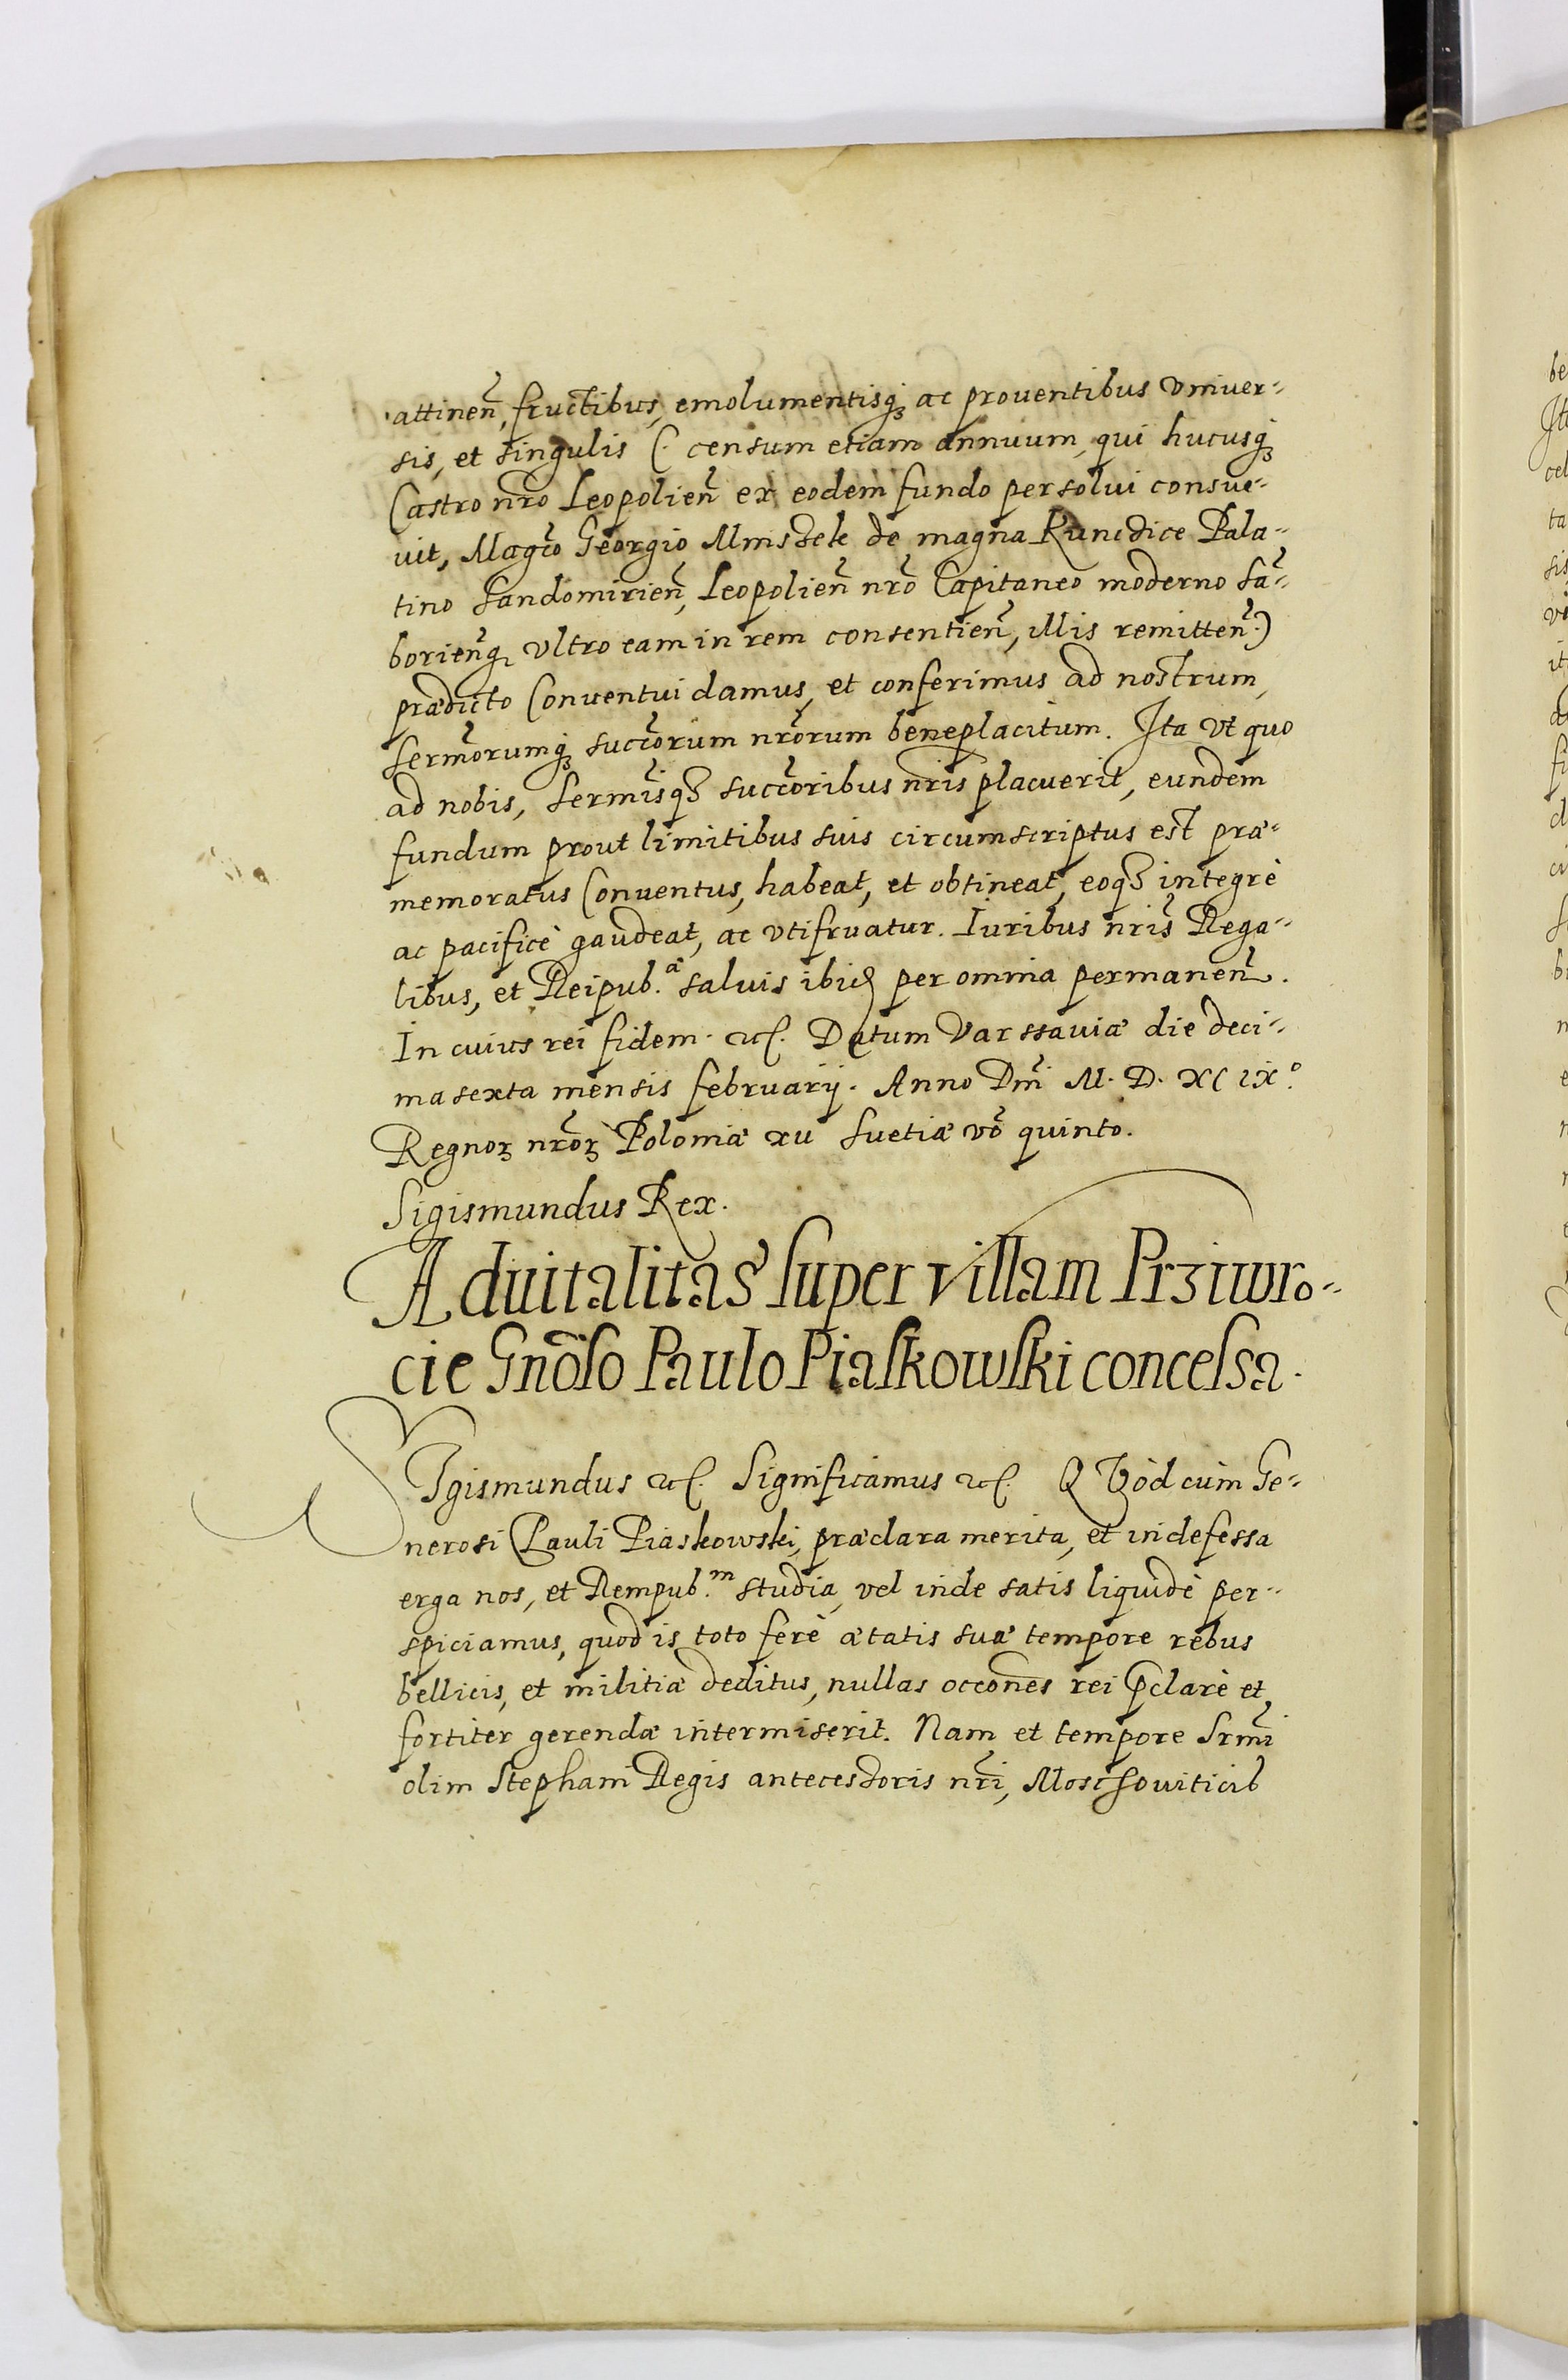 attineñ, fructibus, emolumentisq; ac prouentibus vniuer-
sis, et singulis (. censum etiam annuum, qui hucusq;
Castro nr̃o Leopolieñ ex eodem fundo persolui consue-
uit, Magc̃o Georgio Mnischek de magna Kunczice Pala-
tino Sandomirieñ, Leopolieñ nr̃o Capitaneo moderno Sã-
borieñq; vltro eam in rem consentieñ, illis remitteñ.)
prædicto Conuentui damus, et conferimus ad nostrum,
Serm̃orumq; succ̃orum nr̃orum beneplacitum. Ita vt quo
ad nobis, Serm̃isq; succ̃oribus nr̃is placuerit, eundem
fundum prout limitibus suis circumscriptus est præ-
memoratus Conuentus, habeat, et obtineat, eoq; integrè
ac pacificè gaudeat, ac vtifruatur. Iuribus nr̃is Rega-
libus, et Reipub.æ saluis ibid per omnia permaneñ.
In cuius rei fidem. etc. Datum Varssauiæ die deci-
ma sexta mensis februarij. Anno Dm̃i M. D. XCIX.º
Regnoꝝ nr̃oꝝ Poloniæ xii Suetiæ võ quinto.
Sigismundus Rex.
Aduitalitas super villam Prziwro-
cie Gnõso Paulo Piaskowski concessa.
SIgismundus etc. Significamus etc. QVod cùm Ge-
nerosi Pauli Piaskowski, præclara merita, et indefessa
erga nos, et Rempub.m studia, vel inde satis liquidè per-
spiciamus, quod is toto ferè ætatis suæ tempore rebus
bellicis, et militiæ deditus, nullas occõnes rei p̃clarè et
fortiter gerendæ intermiserit. Nam et tempore Srm̃i
olim Stephani Regis antecessoris nr̃i, Moschouiticis